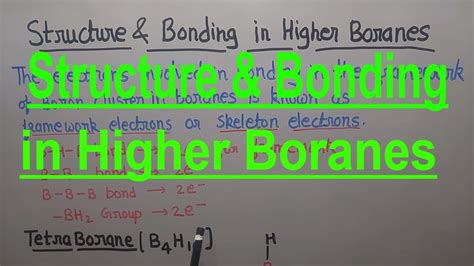 Structure & Bonding in Higher Boranes
Structure & Bonding
in Higher Boranes
The electrons involved in
of boron cluster in boranes is known as
framework electrons or skeleton electrons.
bond → 2e⁻
B-B-B bond → 2e⁻
-BH₂ Group → 2e⁻
TetraBorane (B₄H₁
H